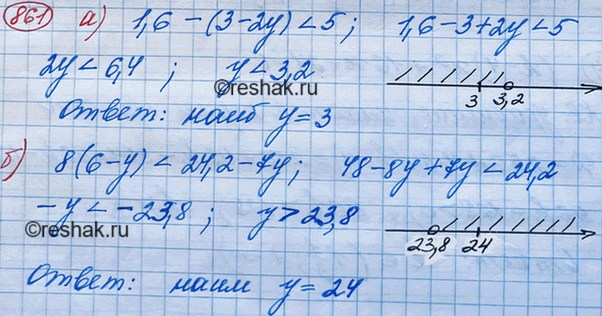 861 а) 1,6 - (3-2y) < 5; 1,6-3+2y < 5
2y < 6,4 ; y < 3,2
©reshak.ru
3 3,2
Ответ: наиб y = 3
б) 8(6-y) < 24,2-7y; 48-8y+7y < 24,2
-y < -23,8 ; y > 23,8
©reshak.ru
23,8 24
Ответ: наим y = 24